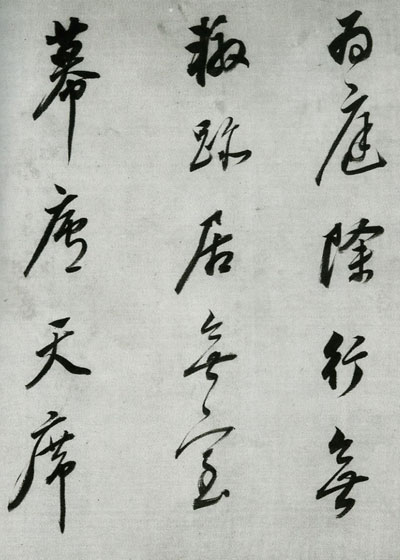 為庭除行無
轍跡居無室
幕廬天席